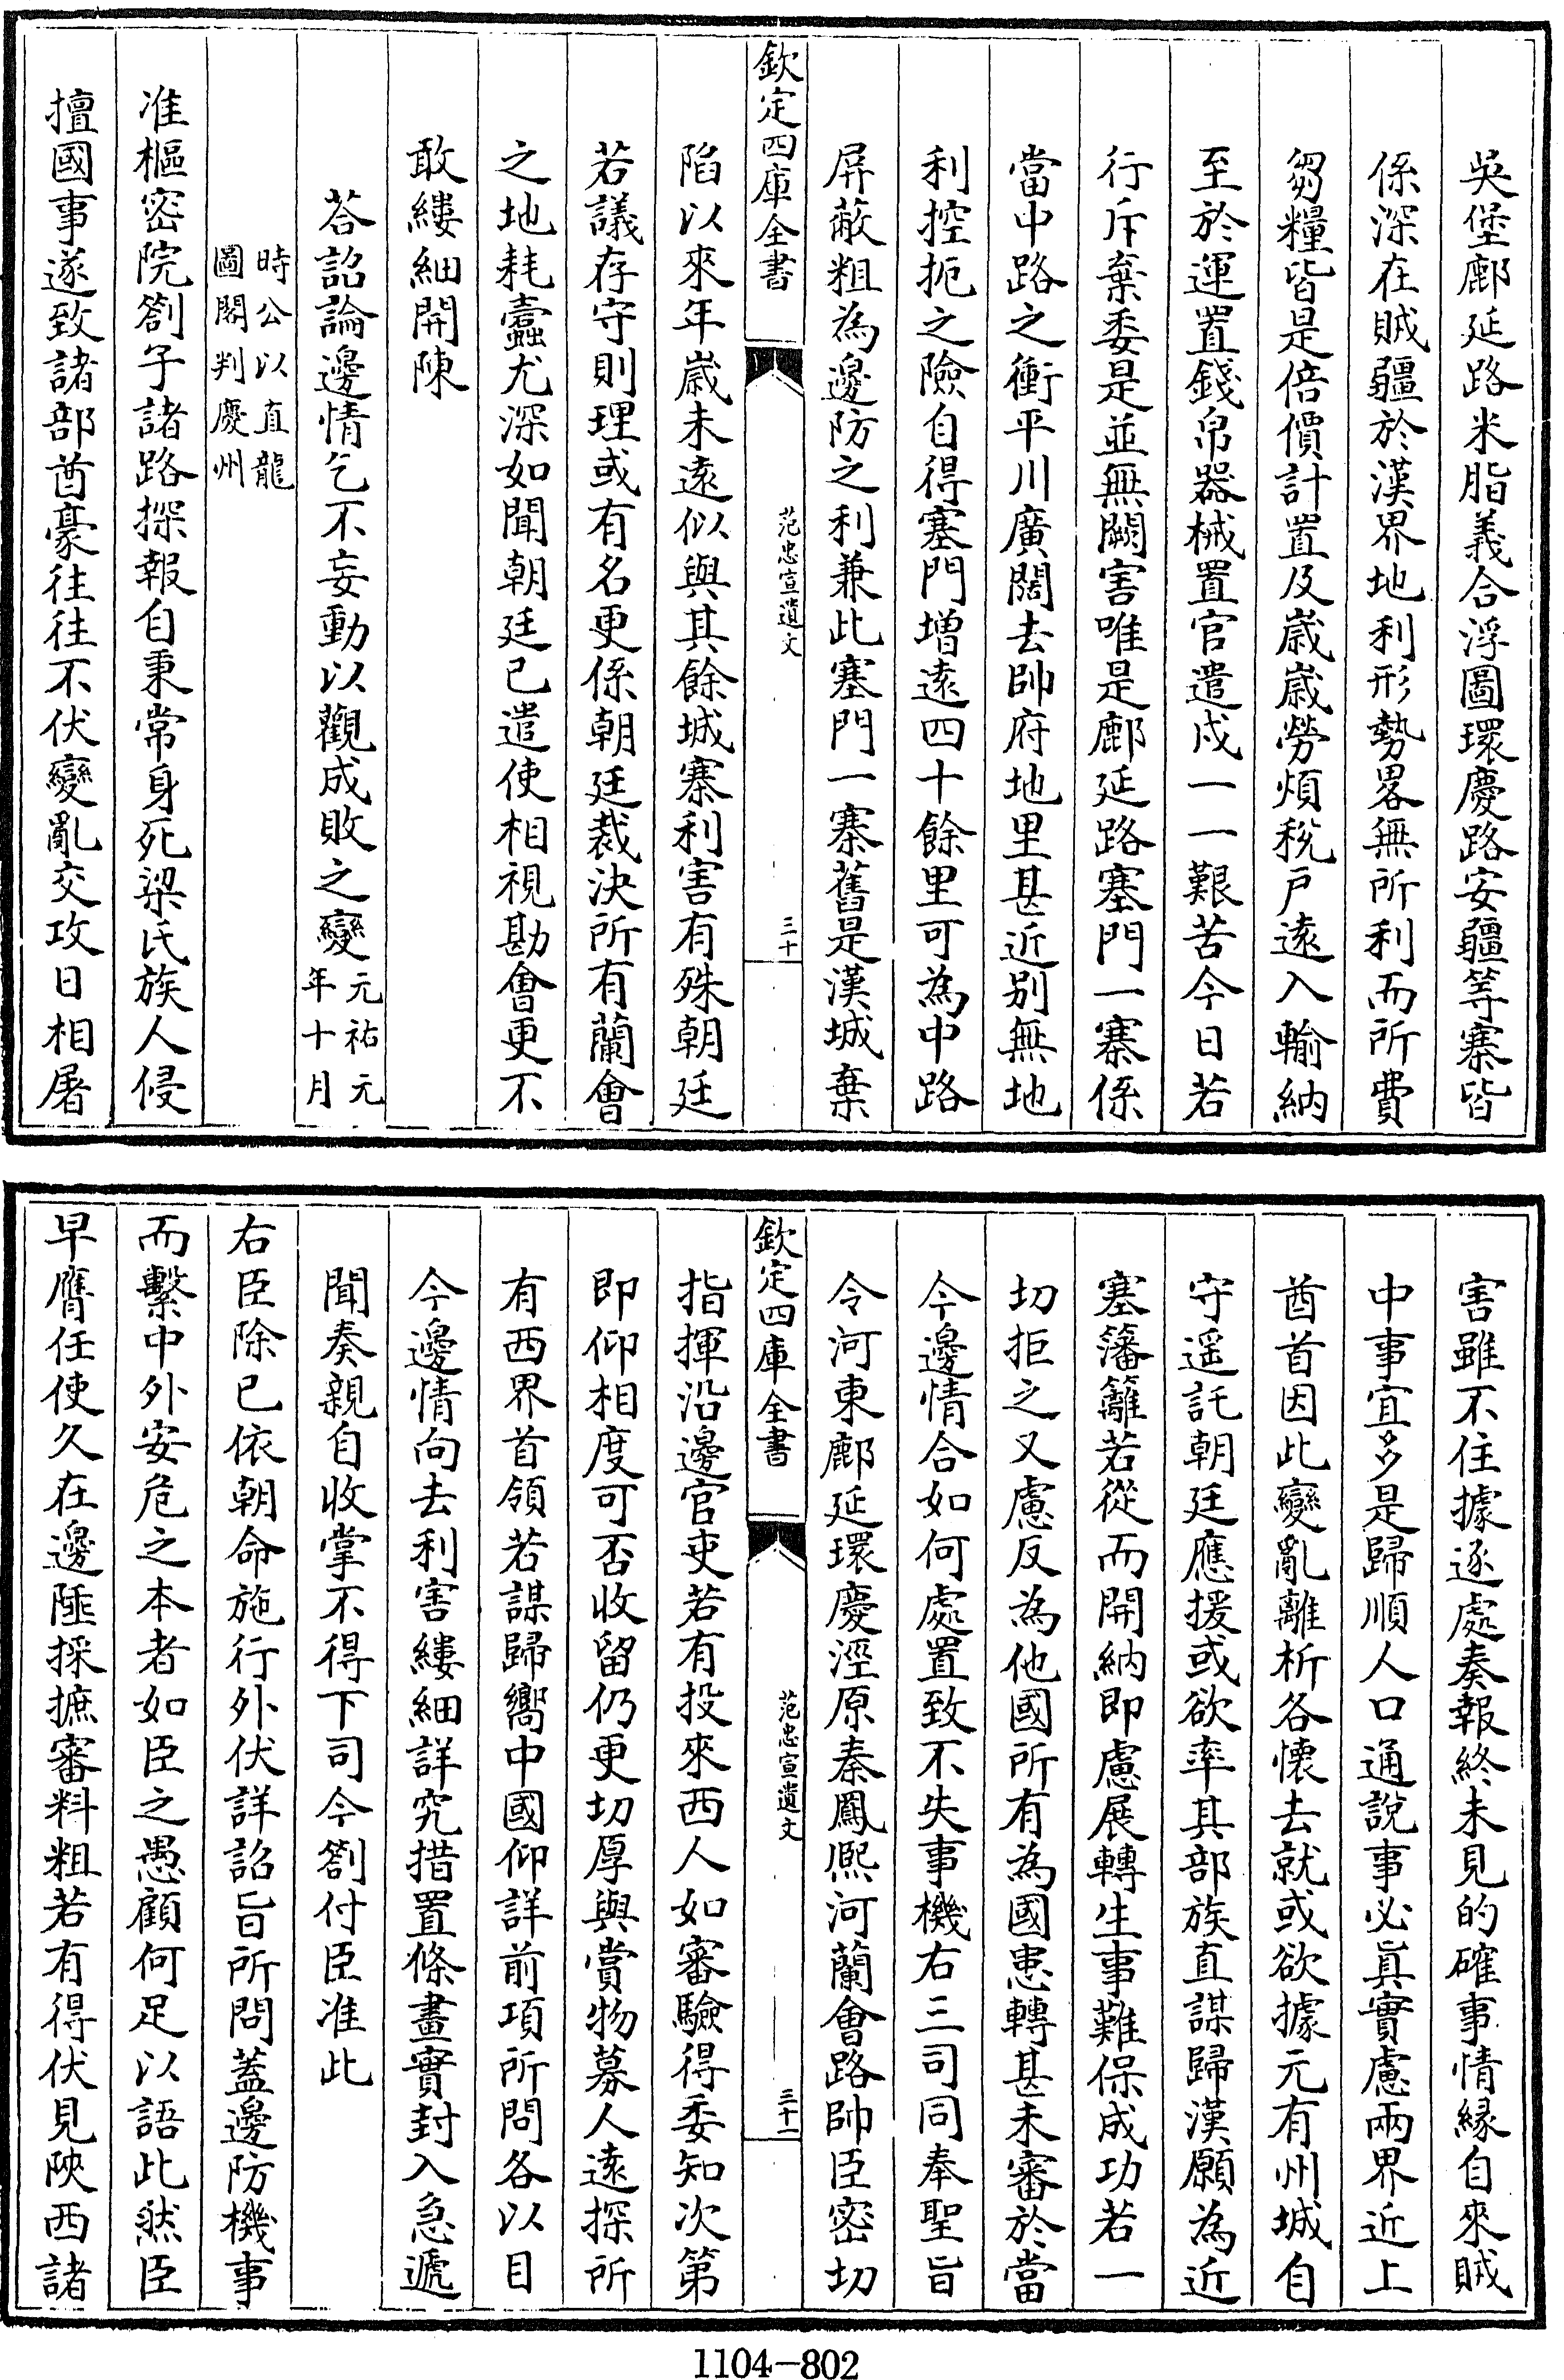 吳堡鄜延路米脂義合浮圖環慶路安疆等寨皆
係深在賊疆於漢界地利形勢畧無所利而所費
芻糧皆是倍價計置及歲歲勞煩稅戸遠入輸納
至於運置錢帛器械置官遣戍一一艱苦今日若
行斥棄委是並無闕害唯是鄜延路塞門一寨係
當中路之衝平川廣闊去帥府地里甚近別無地
利控扼之險自得塞門增遠四十餘里可為中路
屏蔽粗為邊防之利兼此塞門一寨舊是漢城棄
欽定四庫全書
范忠宣遺文
三十
陷以來年歲未遠似與其餘城寨利害有殊朝廷
若議存守則理或有名更係朝廷裁決所有蘭會
之地耗蠹尤深如聞朝廷已遣使相視勘會更不
敢縷細開陳
荅詔論邊情乞不妄動以觀成敗之變元祐元
年十月
時公以直龍
圖閣判慶州
准樞密院劄子諸路探報自秉常身死梁氏族人侵
擅國事遂致諸部酋豪往往不伏變亂交攻日相屠
害雖不住據逐處奏報終未見的確事情緣自來賊
中事宜多是歸順人口通說事必眞實慮兩界近上
酋首因此變亂離析各懷去就或欲據元有州城自
守遥託朝廷應援或欲率其部族直謀歸漢願為近
塞藩籬若從而開納即慮展轉生事難保成功若一
切拒之又慮反為他國所有為國患轉甚未審於當
今邊情合如何處置致不失事機右三司同奉聖旨
令河東鄜延環慶涇原秦鳳熈河蘭會路帥臣密切
欽定四庫全書
范忠宣遺文
三十一
指揮沿邊官吏若有投來西人如審驗得委知次第
即仰相度可否收留仍更切厚與賞物募人遠探所
有西界首領若謀歸嚮中國仰詳前項所問各以目
今邊情向去利害縷細詳究措置條畫實封入急遞
聞奏親自收掌不得下司今劄付臣准此
右臣除已依朝命施行外伏詳詔旨所問蓋邊防機事
而繫中外安危之本者如臣之愚顧何足以語此然臣
早膺任使久在邊陲採摭審料粗若有得伏見陜西諸
1104-802